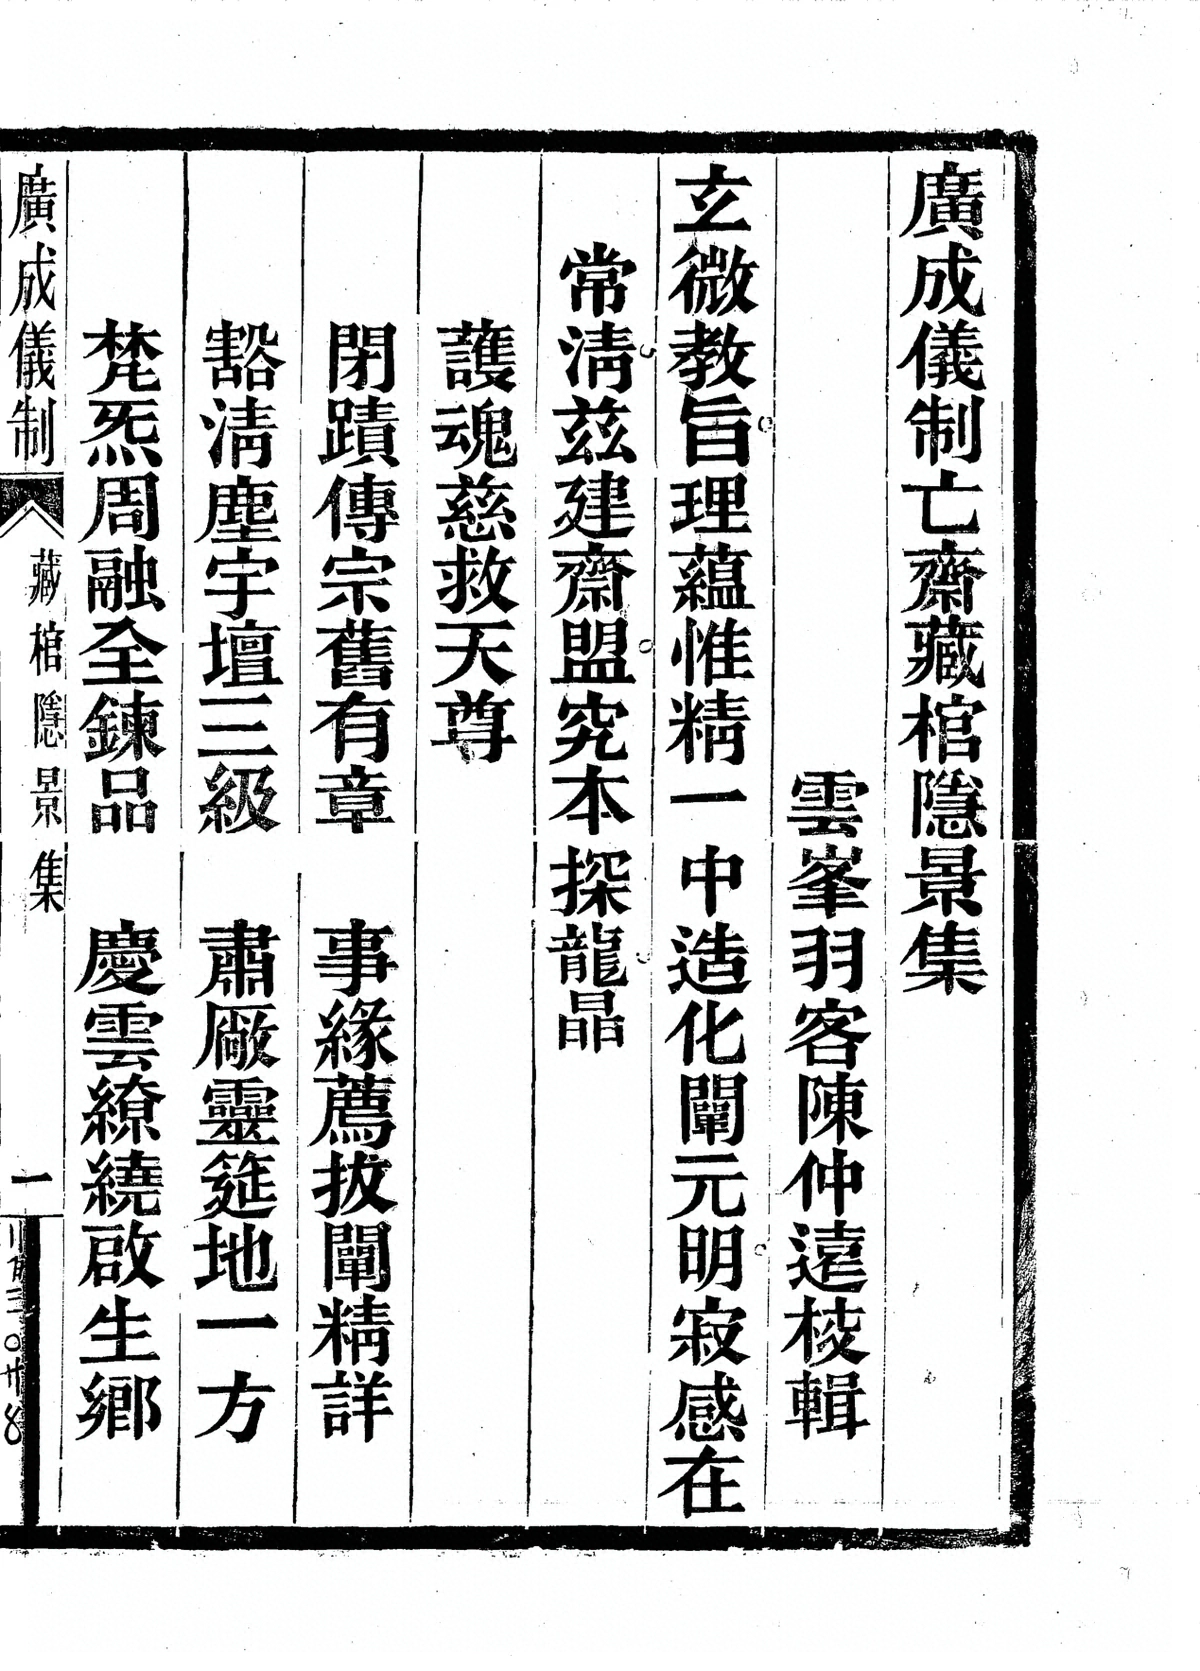 廣成儀制亡齋藏棺隱景集
雲峯羽客陳仲遠校輯
玄微教旨理蘊惟精一中造化闡元明寂感在
常淸茲建齋盟究本探龍晶
護魂慈救天尊
閉蹟傳宗舊有章　事緣薦拔闡精詳
豁淸塵宇壇三級　肅厰靈筵地一方
梵炁周融全鍊品　慶雲繚繞啟生鄉
廣成儀制　藏棺隱景集　一